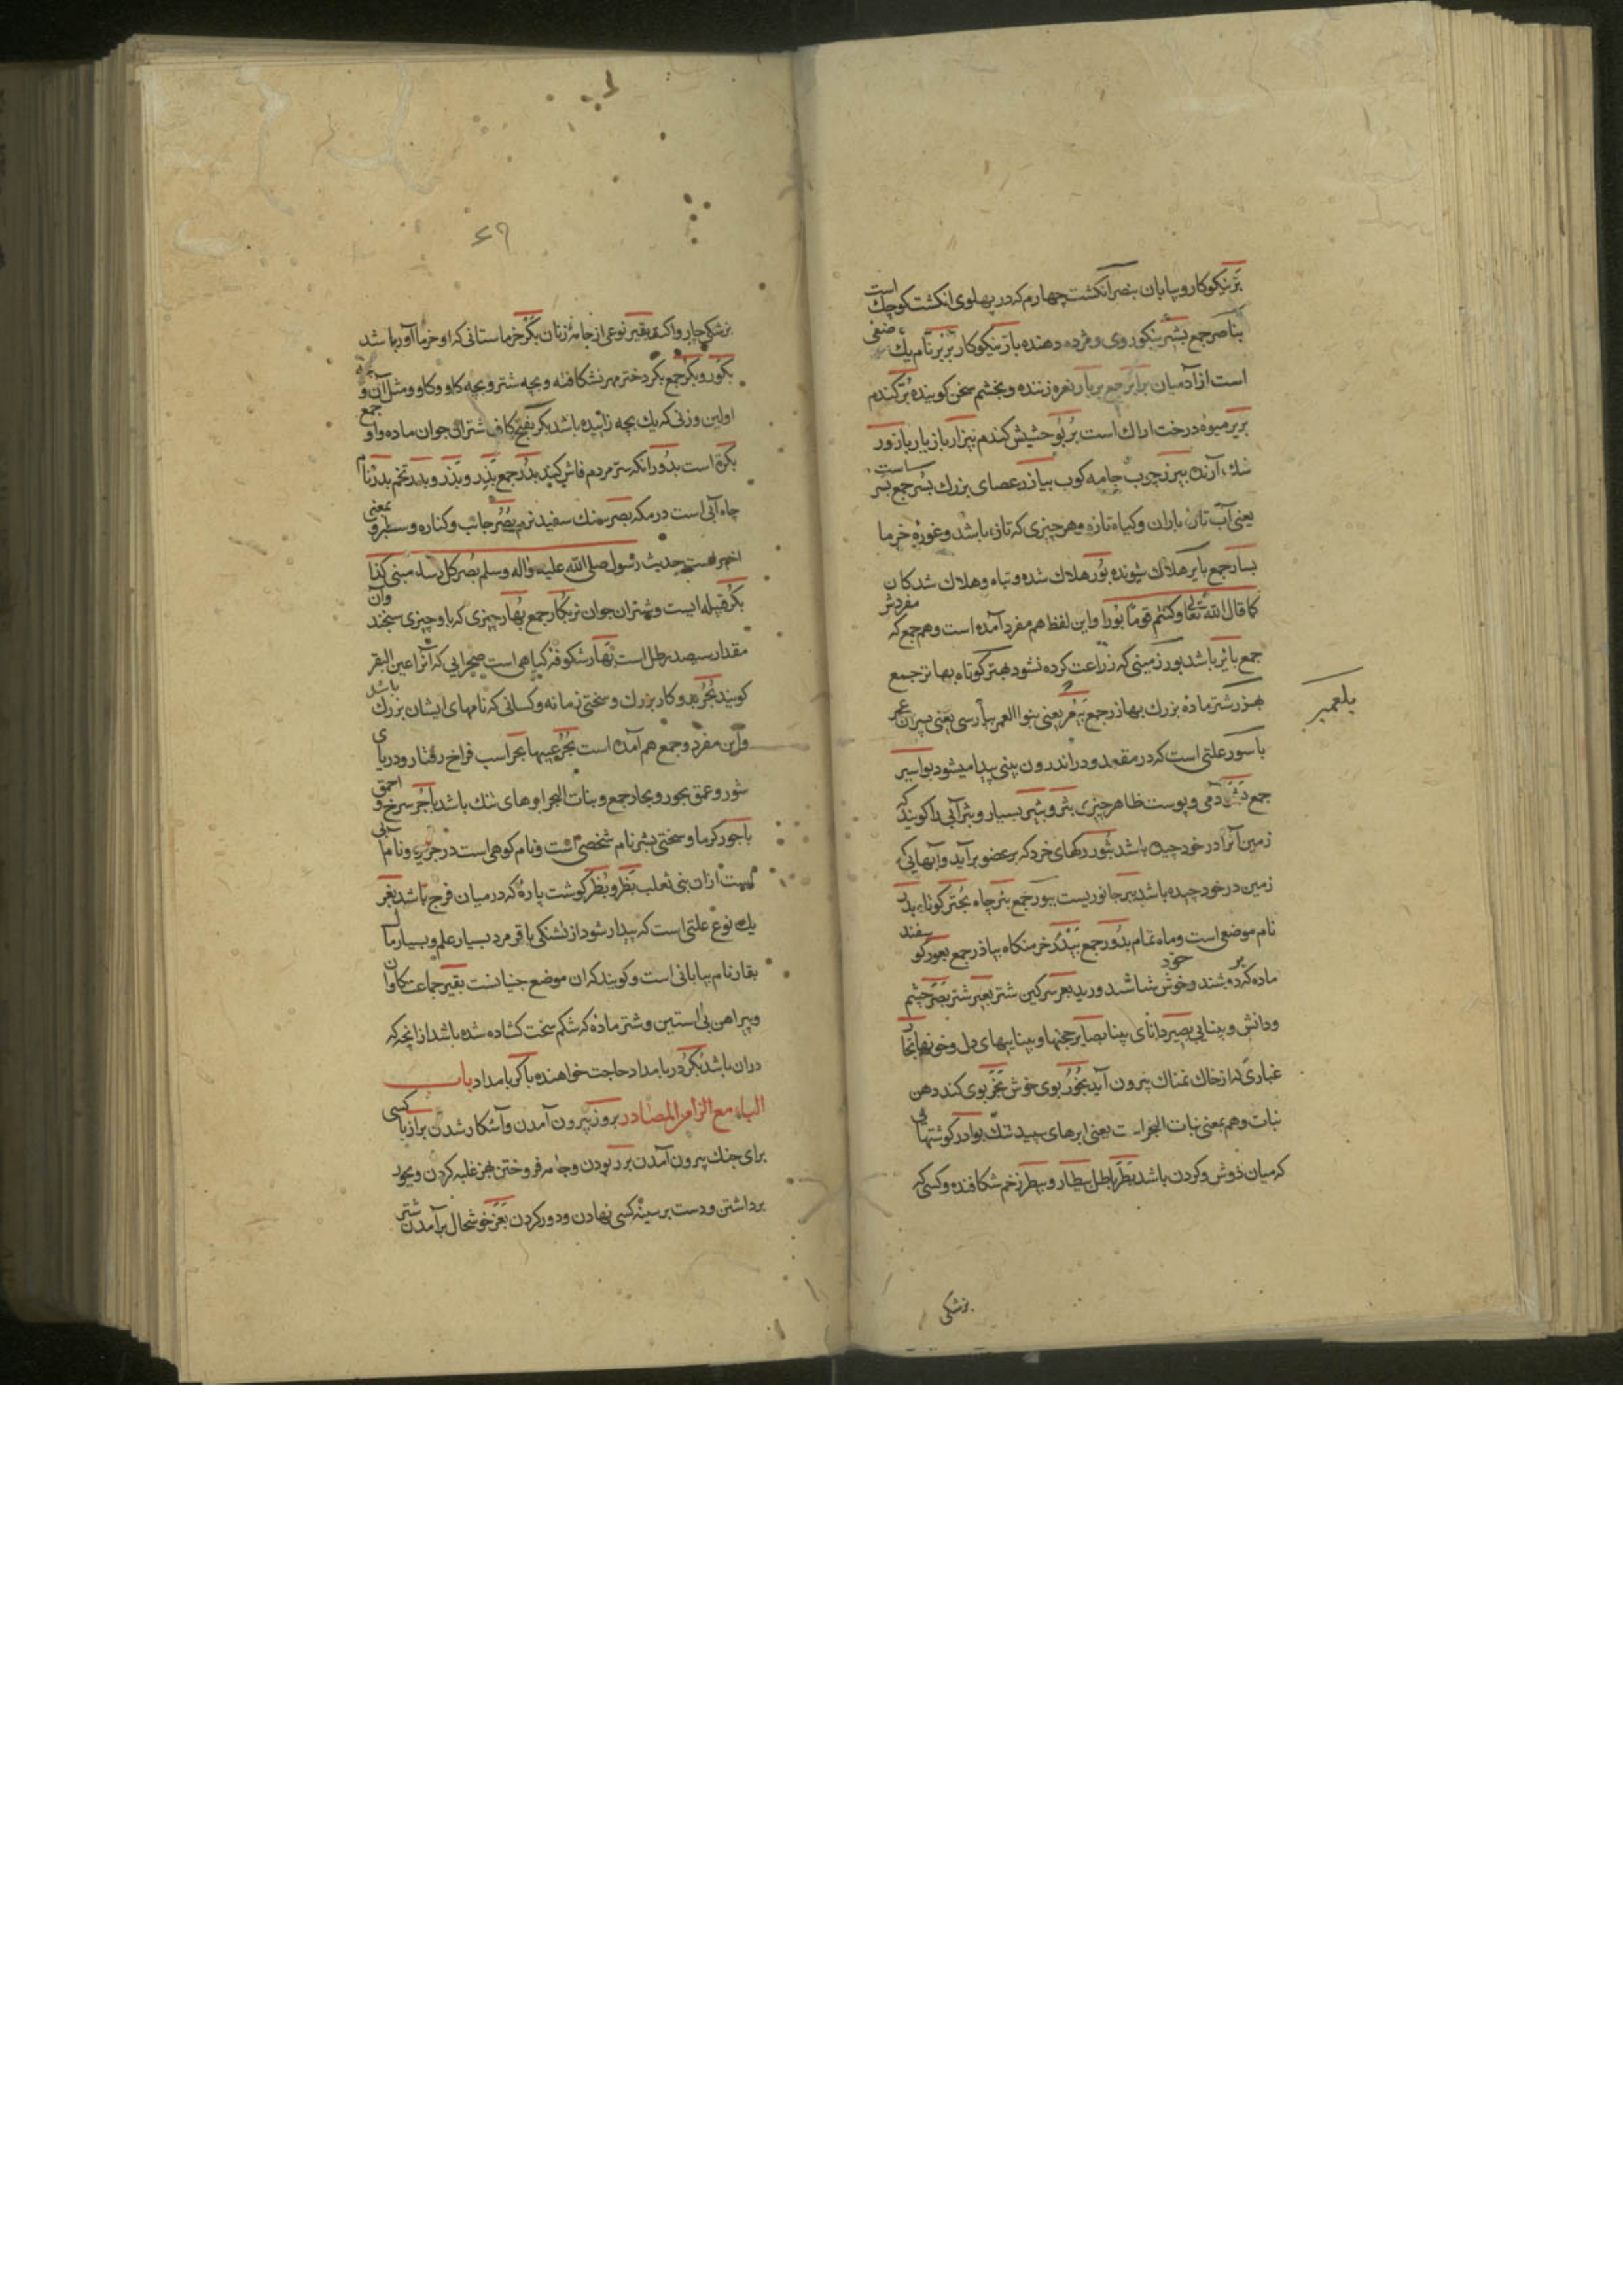 بَرّ نیکوکار و بیابان بنصر آنکشت چهارم که در پهلوی انکشت کوچك است
بناصر جمع بشیر نیکوروی و مژده دهنده بارّ نیکوکار بربر نام یك صنفی
است از آدمیان برابر جمع بربار نعره زننده و بخشم سخن کوینده بُرّ کندم
بریر میوهٔ درخت اراك است بُربُور حشیش کندم بیزار بازیار بازور
بیزر چوب جامه کوب بیازر عصای بزرك بُسر جمع بسر
یعنی آب تازهٔ باران و کیاه تازه و هر چیزی که تازه باشد و غورهٔ خرما
بسار جمع بایر هلاك شونده بُور هلاك شده و تباه و هلاك شدکان
کما قال الله تعالی وکنتم قومًا بورًا و این لفظ هم مفرد آمده است و هم جمع که مفردش
جمع بائر باشد بور زمینی که زراعت کرده نشود بهتر کوتاه بهاتر جمع
بهزر شتر ماده بزرك بهاذر جمع یعنی بنوا العمر بپارسی یعنی پسران عمر
بلعمبر
باسور علتی است که در مقعد و در اندرون بینی پیدا میشود بواسیر
جمع بَشَر آدمی و پوست ظاهر چیزی بثر و بثیر بسیار و بثر آبی را کویند که
زمین آنرا در خود چیده باشد بثور رکهای خرد که بر عضو برآید و آبهایی که
زمین در خود چیده باشد ببر جانوریست ببور جمع بئر چاه بُحتر کوتاه بدر
نام موضعی است و ماه تمام بدور جمع بَیْدَر خرمنکاه بیادر جمع بعور کوسفند
ماده که دوشند و خوش شاشند بر خود بعر سرکین شتر بعیر شتر بَصَر چشم
و دانش و بینایی بصیر دانای بینا بصایر حجتها و بیناییهای دل و خونها بخار
غباری که از خاك نمناك بیرون آید بخُور بوی خوش بَخَر بوی کند دهن
نبات و هم بمعنی نبات البخر است یعنی ابرهای سپید تنك بوادر کوشتهایی
که میان دوش و کردن باشد بَطَر باطل بیطار و بیطر زخم شکافنده و کسی که
بزشکی
۶۹
بزشکی چاروا کند بقیر نوعی از جامهٔ زنان بکر خرماستانی که او خرما آور باشد
بکور و بکر جمع بکر دختر مهر نشکافته و بچه شتر و بچه کاو و کاو و مثل آن و بچه
اولین و زنی که یك بچه زاییده باشد بکر بفتح کاف شتران جوان ماده و او جمع
بکرة است بدور آنکه سرّ مردم فاش کند بذر جمع بَذِر و بَذْر و بذر تخم بدر نام
چاه آبی است در مکه بصر سنك سفید نرم بُصر جانب و کناره و سطبر و بمعنی
اخیر است حدیث رسول صلی الله علیه واله وسلم بصر کل سماء مبنی کذا
بکر قبیله ایست و شتران جوان نر بکار جمع بُهار چیزی که باو چیزی سنجند وآن
مقدار سیصد رطل است بَهار شکوفه کیاهی است صحرایی که آنرا عین البقر
کویند بُجر بد و کار بزرك و سختی زمانه و کسانی که نامهای ایشان بزرك باشد
و این مفرد و جمع هم آمده است بُجَر عیبها بحر اسب فراخ رفتار و دریای
شور و عمق بحور و بحار جمع و بنات البحر ابرهای تنك باشد باحر سرخ و احمق
باحور کرما و سختی بشر نام شخصی است و نام کوهی است در جزیره و نام آبی
است ازان بنی ثعلب بَظر و بُظر کوشت پارهٔ که در میان فرج باشد بغر
یك نوع علتی است که پیدا شود از تشنکی باقر مرد بسیار علم و بسیار مال
بقار نام بیابانی است و کویند که ان موضع جنیانست بقیر جماعت کاوان
و پیراهن بی آستین و شتر ماده که شکم سخت کشاده شده باشد از انچه که
دران باشد بُکر در بامداد حاجت خواهنده باکر بامداد باب
الباء مع الزا من المصادر بروز بیرون آمدن و آشکار شدن براز با کسی
برای جنك بیرون آمدن بز ربودن و جامه فروختن بهز غلبه کردن و بجور
برداشتن و دست بر سینهٔ کسی نهادن و دور کردن بَغز خوشحال برآمدن شتر